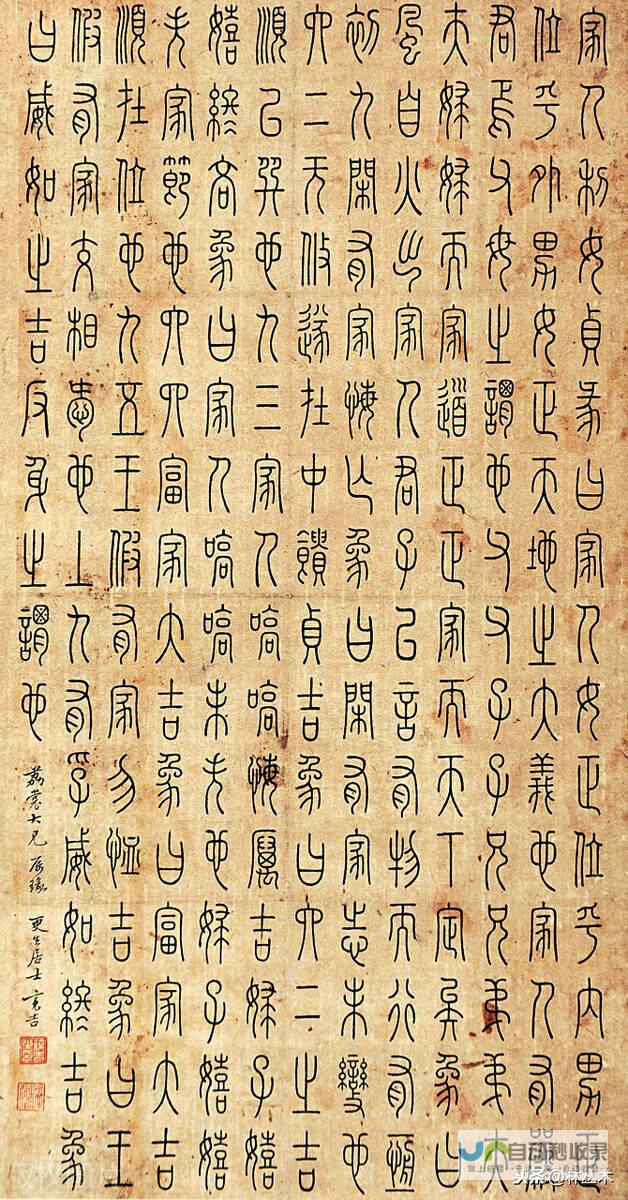 家人利女貞彖曰家人女正位乎內男正
位乎外男女正天地之大義也家人有嚴
君焉父母之謂也父父子子兄兄弟弟夫
夫婦婦而家道正正家而天下定矣象曰
風自火出家人君子以言有物而行有恆
初九閑有家悔亡象曰閑有家志未變也
六二无攸遂在中饋貞吉象曰六二之吉
順以巽也九三家人嗃嗃悔厲吉婦子嬉
嬉終吝象曰家人嗃嗃未失也婦子嬉嬉
失家節也六四富家大吉象曰富家大吉
順在位也九五王假有家勿恤吉象曰王
假有家交相愛也上九有孚威如終吉象
曰威如之吉反身之謂也
荔裳大兄 屬篆 更生居士 亮吉
自动秒收录
头条@林丛木